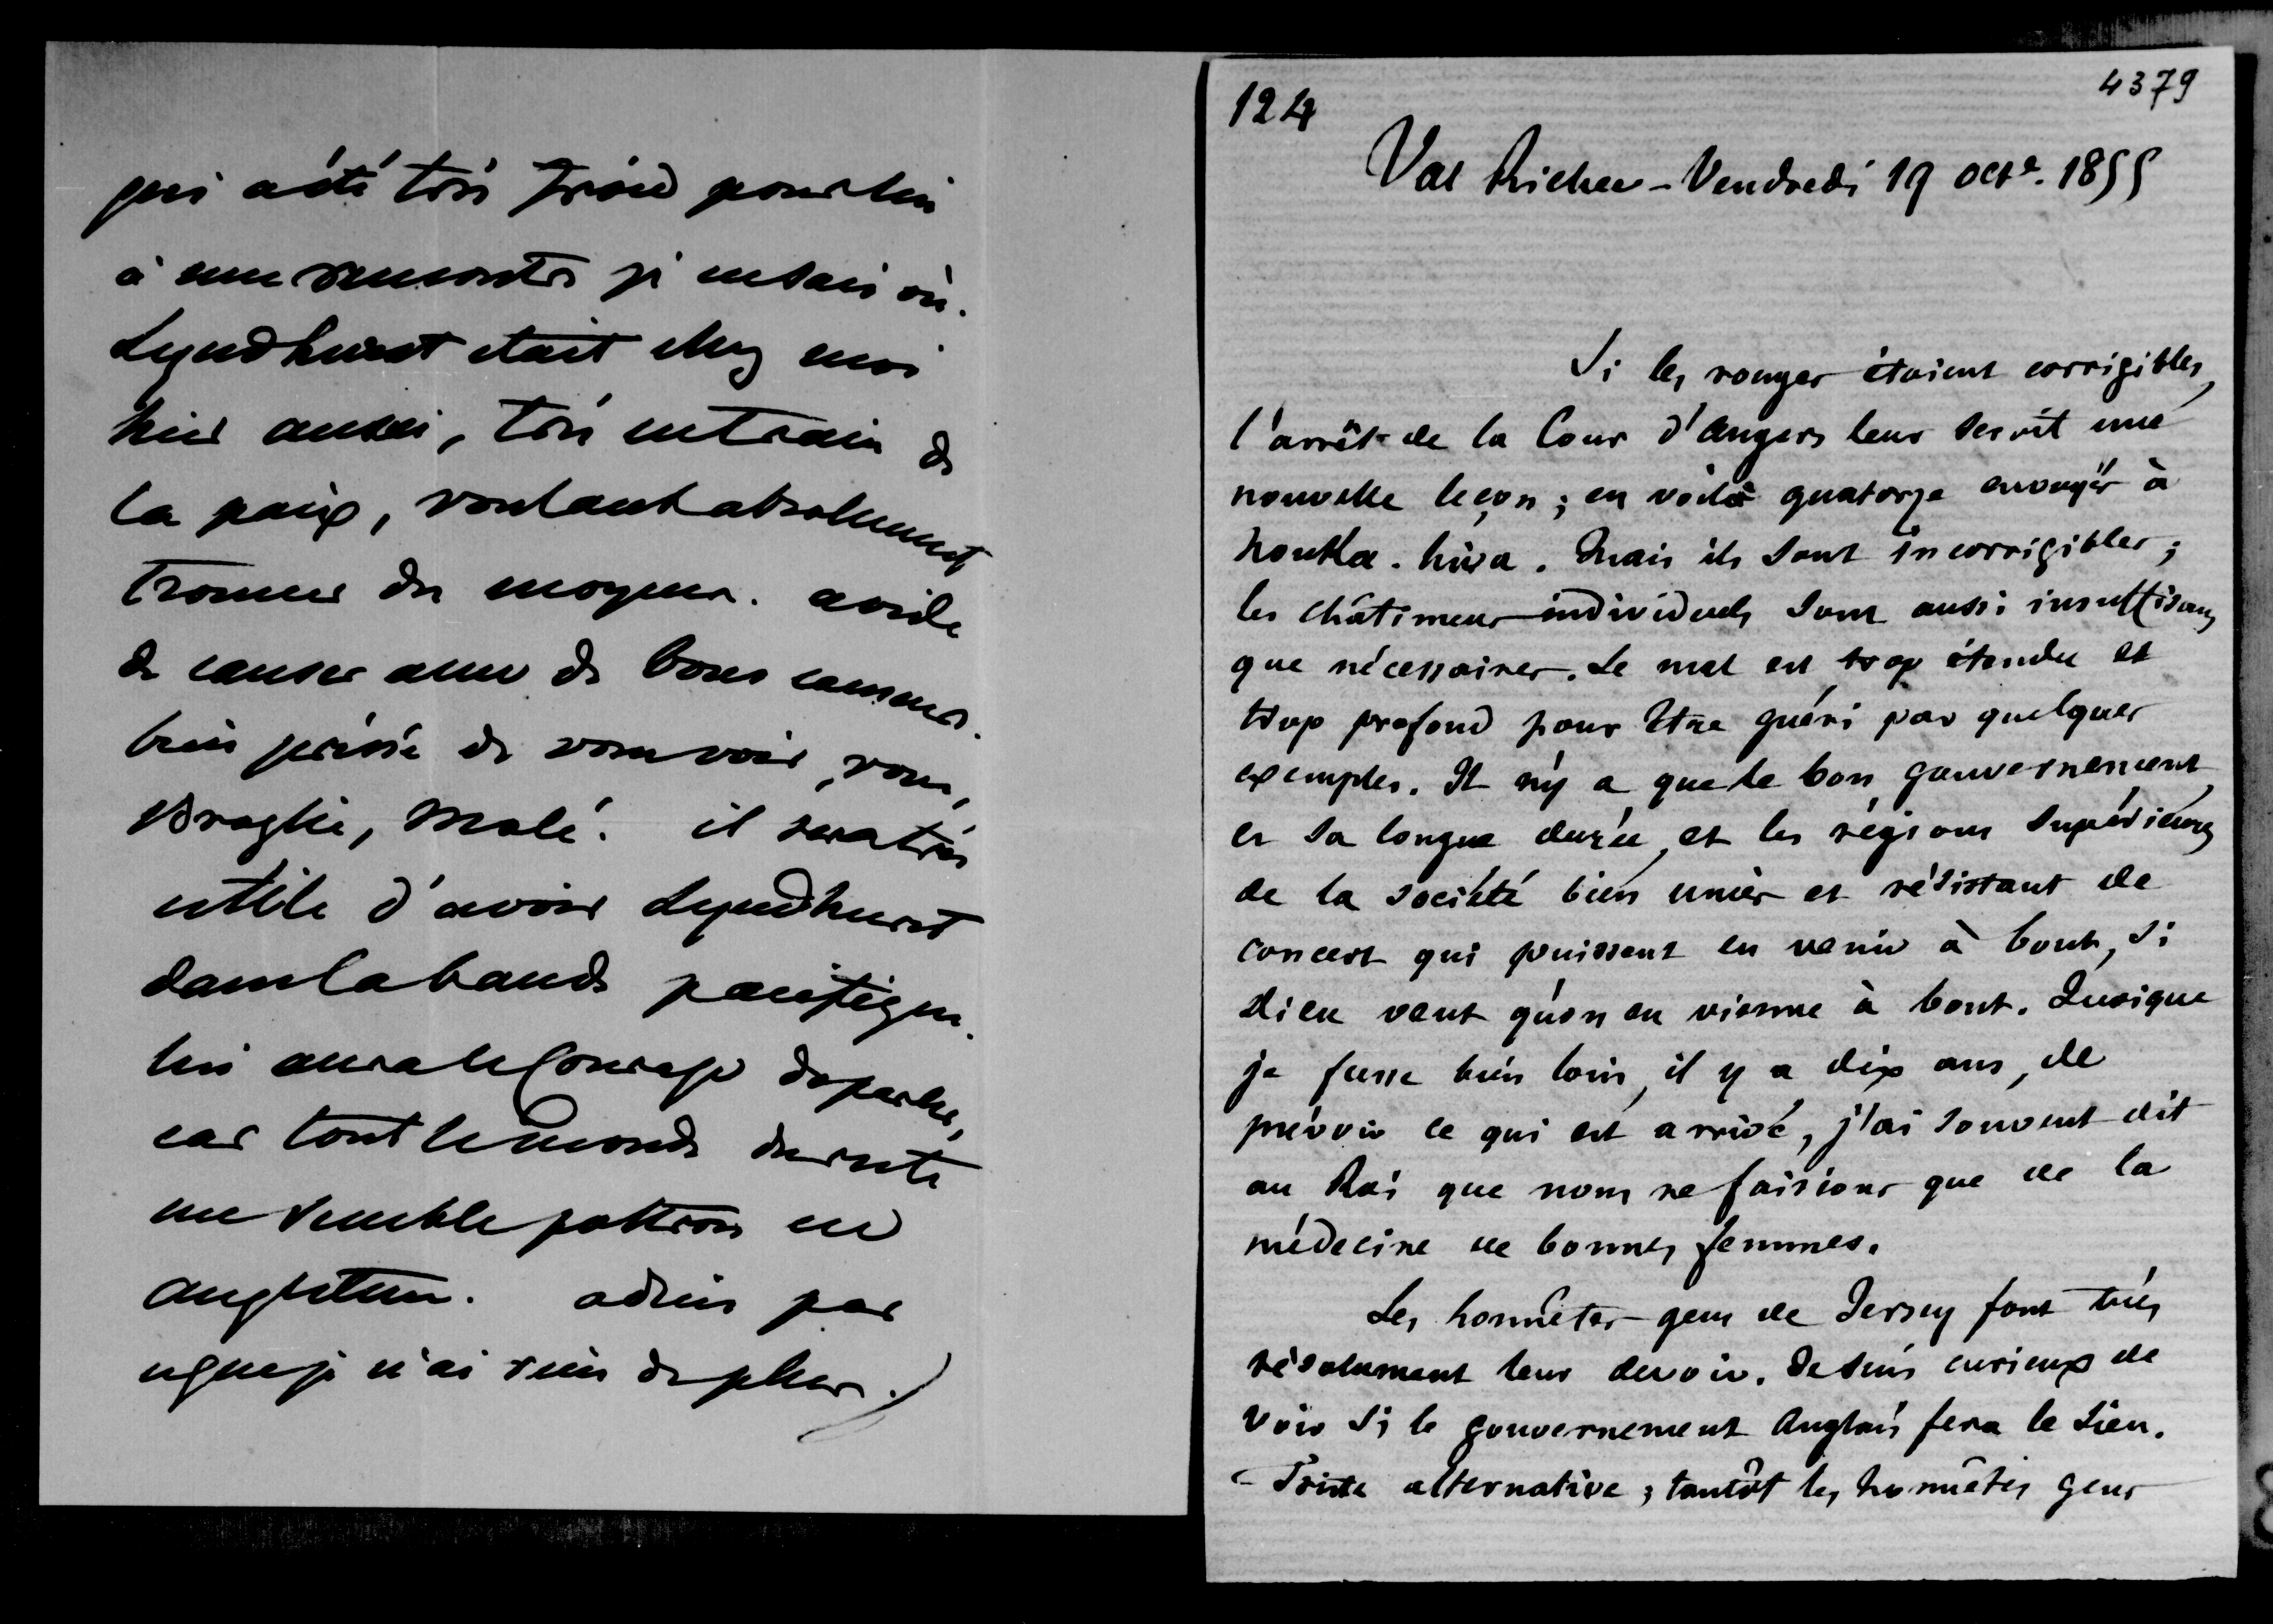 qui a été très froid pour lui
à une rencontre je ne sais où.
Lyndhurst était chez moi
hier aussi, très en train de
la paix, voulant absolument
trouver des moyens. avide
de causer avec de bons causeurs.
bien pressé de vous voir, vous,
Broglie, Molé. il sera très
utile d'avoir Lyndhurst
dans la bande pacifique.
lui aura le courage de parler,
car tout le monde du reste
me semble poltron en
angleterre. adieu par
ce que je n'ai rien de plus.
124
4379
Val Richer - Vendredi 19 octe. 1855
Si les rouges étoient corrigibles,
l'arrêt de la Cour d'Angers leur seroit une
nouvelle leçon ; en voilà quatorze envoyés à
Nouka-hiva. Mais ils sont incorrigibles ;
les châtimens individuels sont aussi insuffisans
que nécessaires. Le mal est trop étendu et
trop profond pour être guéri par quelques
exemples. Il n'y a que le bon gouvernement,
et sa longue durée, et les régions supérieures
de la société bien unies et résistant de
concert qui puissent en venir à bout, si
Dieu veut qu'on en vienne à bout. Quoique
je fusse bien loin, il y a dix ans, de
prévoir ce qui est arrivé, j'ai souvent dit
au Roi que nous ne faisions que de la
médecine de bonnes femmes.
Les honnêtes gens de Jersey font très
résolument leur devoir. Je suis curieux de
voir si le gouvernement Anglais fera le sien.
Triste alternative ; tantôt les honnêtes gens